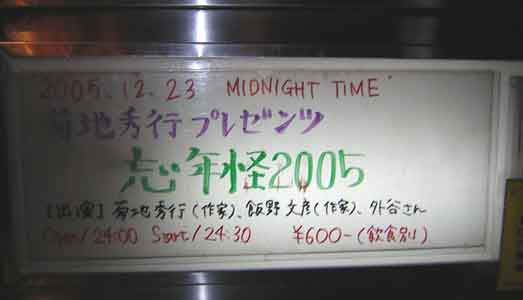 2005.12.23 MIDNIGHT TIME
菊地秀行プレゼンツ
忘年怪2005
【出演】菊地秀行(作家)、飯野文彦(作家)、外谷さん
Open/24:00 Start/24:30 ¥600-(飲食別)